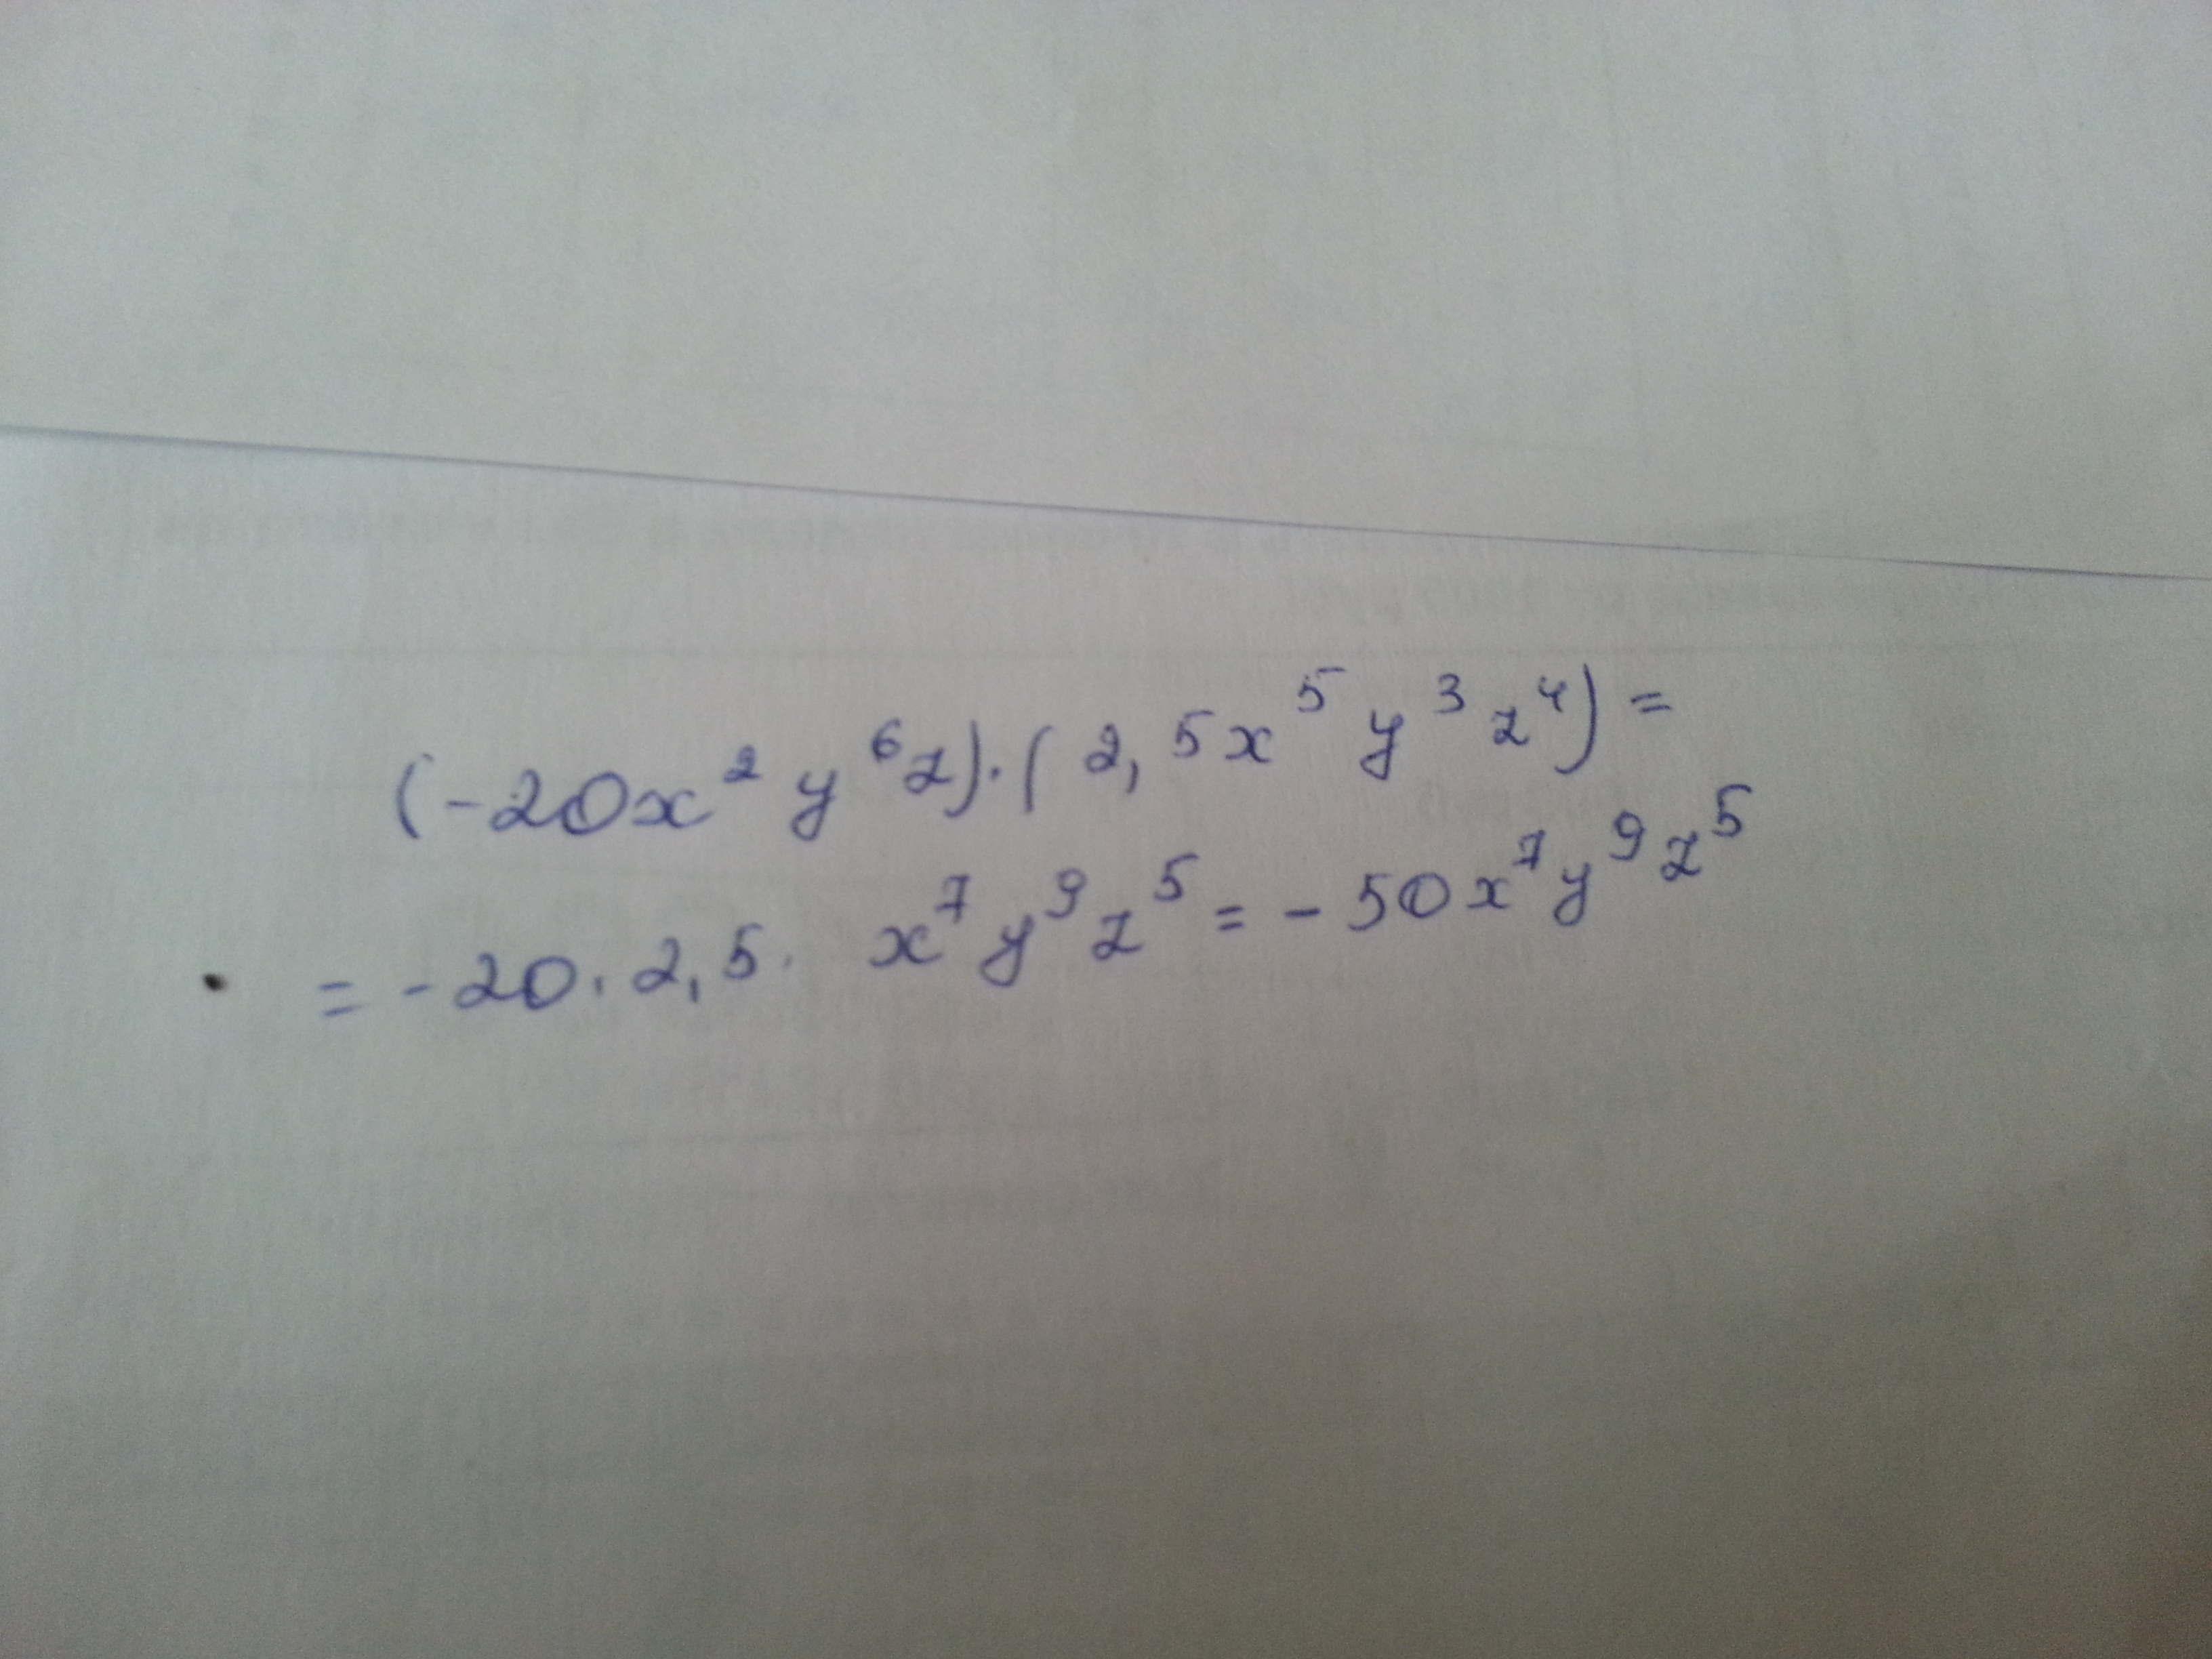 (-20x²y⁶z)·(2,5x⁵y³z⁴)=
=-20·2,5·x⁷y⁹z⁵=-50x⁷y⁹z⁵